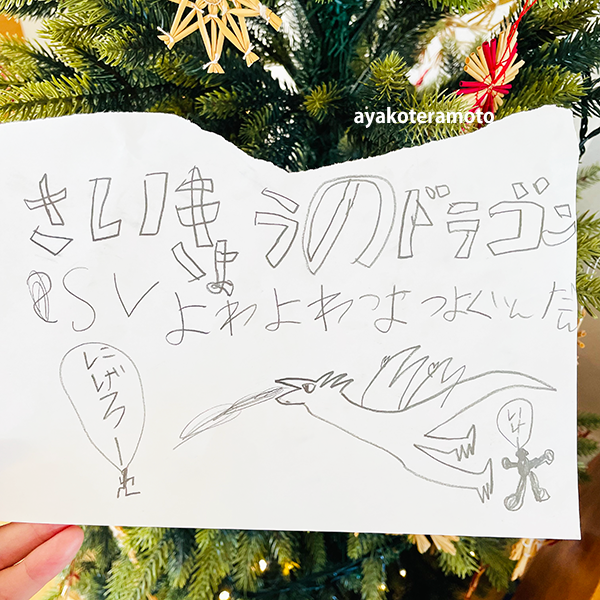 ayakoteramoto
さいきょうのドラゴン
SVよわよわつよつよぐん
にげろー